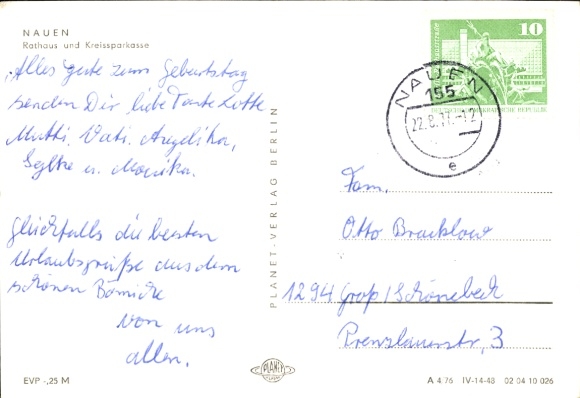 NAUEN
Rathaus und Kreissparkasse
Alles gute zum Geburtstag
senden Dir, liebe Tante Lotte
Mutti, Vati, Angelika,
Sylke u. Monika.
Gleichfalls die besten
Urlaubsgrüße aus dem
schönen Börnicke
von uns
allen.
EVP -,25 M
PLANET-VERLAG BERLIN
PLANET
10
DEUTSCHE DEMOKRATISCHE REPUBLIK
NAUEN
155
22.8.77.-12
e
Fam.
Otto Bracklow
1294 Groß/Schönebeck
Prenzlauerstr, 3
A 4.76 IV-14-48 02 04 10 026